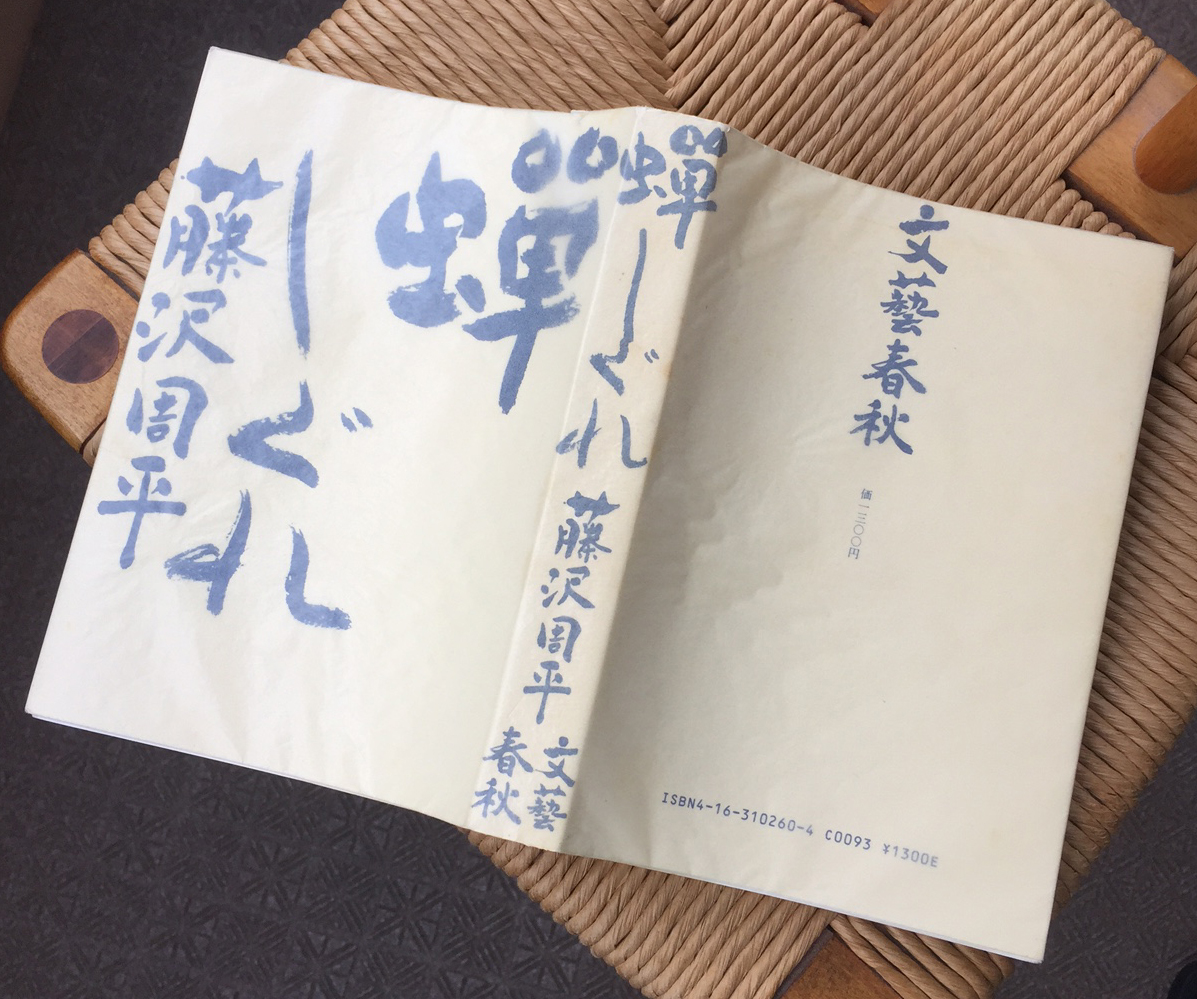 蝉
しぐれ
藤沢周平
蝉しぐれ
藤沢周平
文藝
春秋
文藝春秋
価一三〇〇円
ISBN4-16-310260-4 C0093 ¥1300E